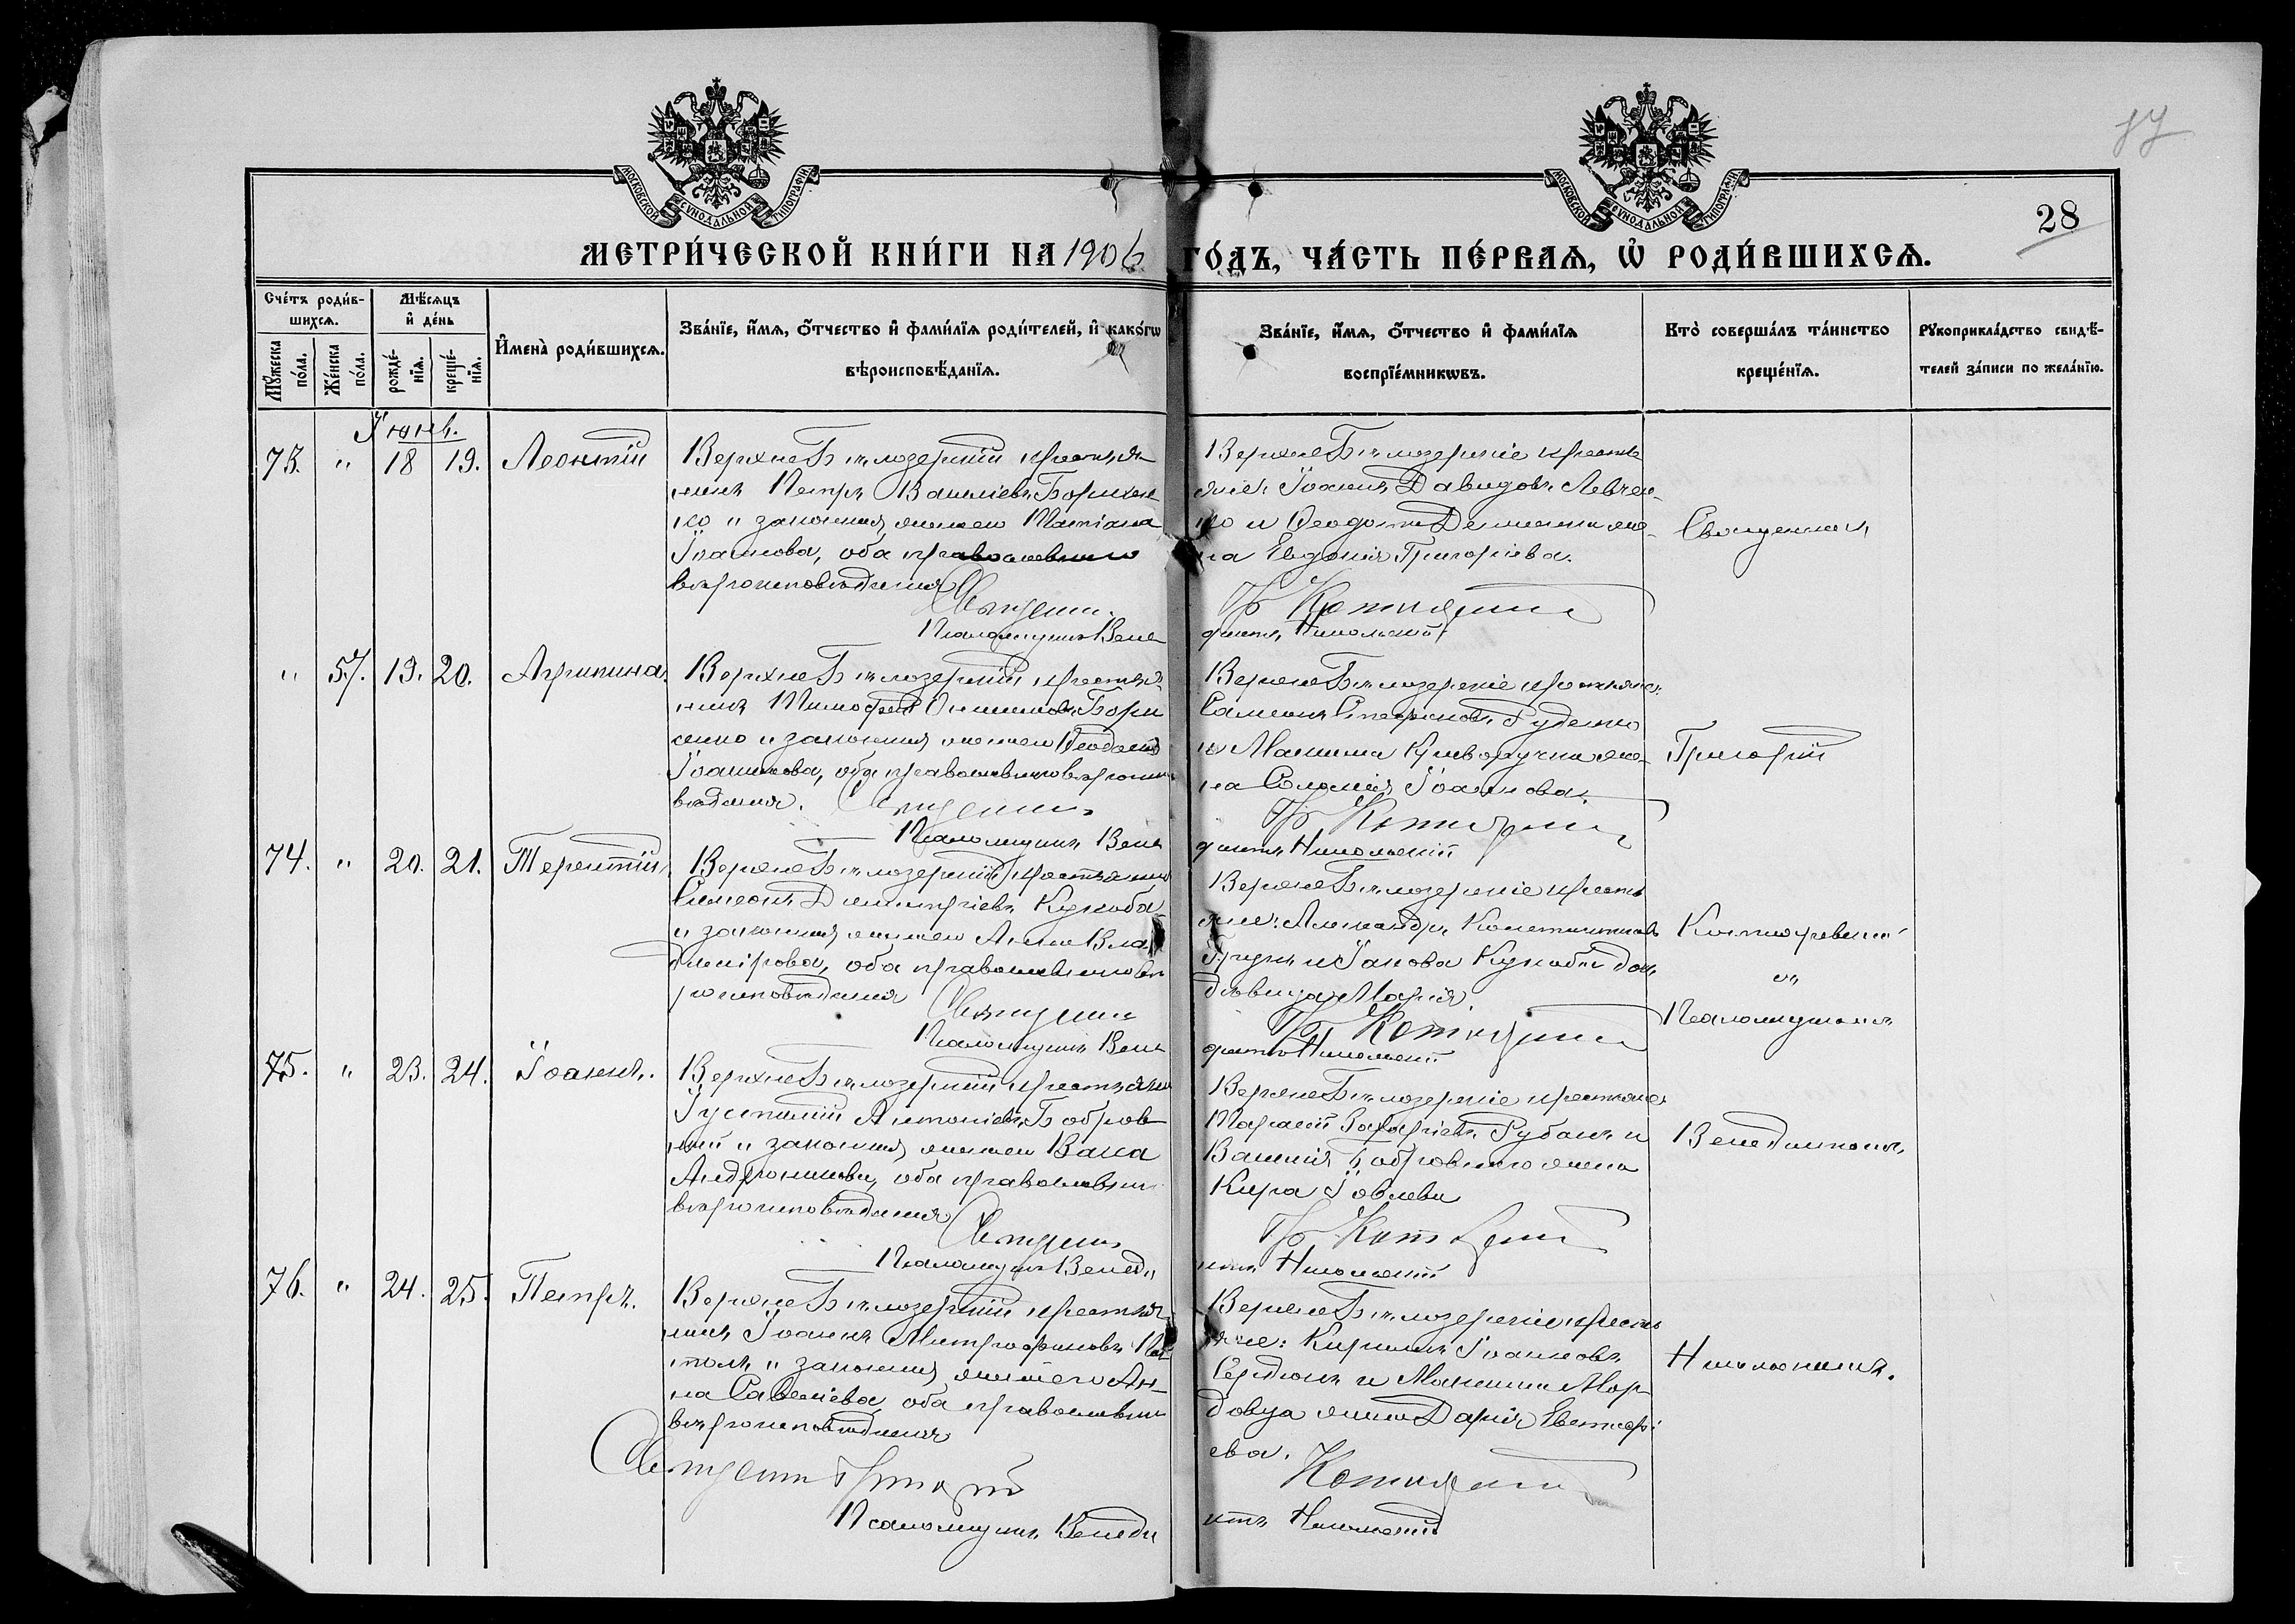 МОСКОВСКОЙ СѴНОДАЛЬНОЙ ТИПОГРАФІИ
МОСКОВСКОЙ СѴНОДАЛЬНОЙ ТИПОГРАФІИ
28
МЕТРИ́ЧЕСКОЙ КНИ́ГИ НА 1906 ГО́ДЪ, ЧА́СТЬ ПЕ́РВАЯ, Ѡ҆ РОДИ́ВШИХСЯ.
Сче́тъ роди́в-
шихся.
Мꙋ́жеска по́ла.
Же́нска по́ла.
Мѣ́сяцъ
и҆ де́нь
рожде́-
нїя.
креще́-
нїя.
И҆мена̀ роди́вшихся.
Зва́нїе, и҆́мя, ѻ҆́тчество и҆ фами́лїя роди́телей, и҆ како́гѡ
вѣроисповѣ́данїя.
Зва́нїе, и҆́мя, ѻ҆́тчество и҆ фами́лїя
воспрїе́мникѡвъ.
Кто̀ соверша́лъ та́инство
креще́нїя.
Рꙋкоприкла́дство свидѣ́-
телей за́писи по жела́нїю.
Іюнь.
73. " 18 19. Леонтій
ВерхнеБѣлозерскій крестья-
нинъ Петръ Васильевъ Борисен-
ко и законная жена его Татіана
Іоаннова, оба православнаго
вѣроисповѣданія
Священн.
Псаломщикъ Вене
ВерхнеБѣлозерскіе кресть
яне: Іоаннъ Давидовъ Левчен-
ко и Ѳеодота Демьяненко же-
на Евдокія Григоріева.
Гр Котляревскій
диктъ Никольскій
Священникъ
" 57. 19. 20. Агрипина
ВерхнеБѣлозерскій крестья-
нинъ Тимофей Онисимовъ Бори
сенко и законная жена его Ѳеодосія
Іоаннова, оба православнаго вѣроиспо
вѣданія. Священникъ
Псаломщикъ Вене
ВерхнеБѣлозерскіе крестьяне:
Самсонъ Стефановъ Руденко
и Максима Криворучки же-
на Соломія Іоаннова.
Гр Котляревскій
диктъ Никольскій
Григорій
74. " 20. 21. Терентій
ВерхнеБѣлозерскій крестьянинъ
Симеонъ Димитріевъ Кукоба
и законная жена его Анна Вла
димірова, оба православнаго вѣ
роисповѣданія Священни
Псаломщикъ Вене
ВерхнеБѣлозерскіе кресть
яне: Александръ Константиновъ
и Іакова Кукобы дочь
дѣвица Марія.
Гр Котляревскій
диктъ Никольскій
Котляревскій
съ
Псаломщикомъ
75. " 23. 24. Іоаннъ.
ВерхнеБѣлозерскій крестьянинъ
Антоніевъ Бобров
скій и законная жена его Васса
Андроникова, оба православнаго
вѣроисповѣданія
Священникъ
Псаломщикъ Венеди
ВерхнеБѣлозерскіе крестьяне:
Тарасій Захаріевъ Рубанъ и
Василія Бобровскаго жена
Кира Іовлева
Гр Котляревскій
ктъ Никольскій
Венедиктомъ
76. " 24. 25. Петръ.
ВерхнеБѣлозерскій крестья-
нинъ Іоаннъ Митрофановъ
и законная жена его Ан-
на Савеліева, оба православнаго
вѣроисповѣданія
Священникъ Григорій
Псаломщикъ Венеди
ВерхнеБѣлозерскіе кресть
яне: Кириллъ Іоанновъ
Сердюкъ и Максима Мор
довца жена Дарія Евстафі
ева.
Котляревскій
ктъ Никольскій
Никольскимъ.